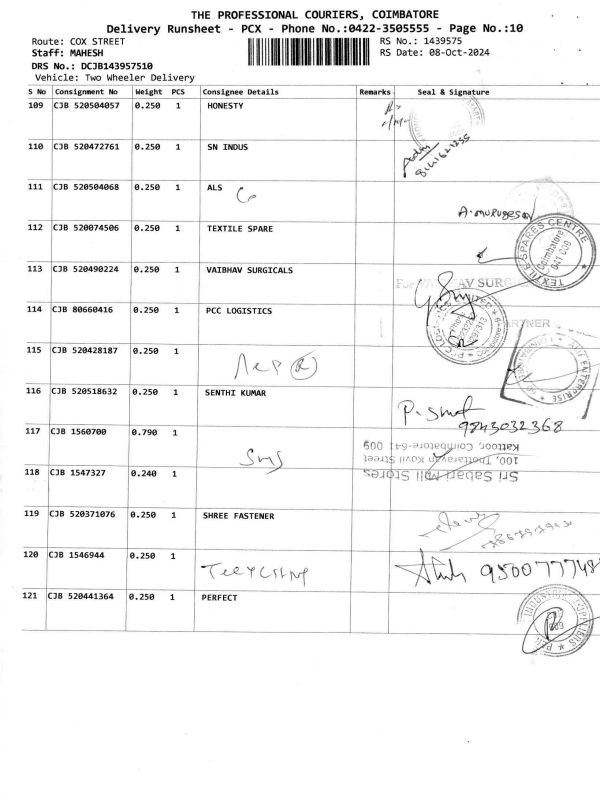 THE PROFESSIONAL COURIERS, COIMBATORE
Delivery Runsheet - PCX - Phone No.:0422-3505555 - Page No.:10
Route: COX STREET
RS No.: 1439575
Staff: MAHESH
RS Date: 08-Oct-2024
DRS No.: DCJB143957510
Vehicle: Two Wheeler Delivery
S No Consignment No Weight PCS Consignee Details Remarks Seal & Signature
109 CJB 520504057 0.250 1 HONESTY
110 CJB 520472761 0.250 1 SN INDUS
111 CJB 520504068 0.250 1 ALS
A. murugesan
112 CJB 520074506 0.250 1 TEXTILE SPARE
TEXTILE SPARES CENTRE
Coimbatore
641 009
113 CJB 520490224 0.250 1 VAIBHAV SURGICALS
114 CJB 80660416 0.250 1 PCC LOGISTICS
115 CJB 520428187 0.250 1
116 CJB 520518632 0.250 1 SENTHI KUMAR
9843032368
117 CJB 1560700 0.790 1
Sri Sabari Mill Stores
100, Thottarayan Kovil Street
Kattoor, Coimbatore-641 009
118 CJB 1547327 0.240 1
119 CJB 520371076 0.250 1 SHREE FASTENER
120 CJB 1546944 0.250 1
121 CJB 520441364 0.250 1 PERFECT